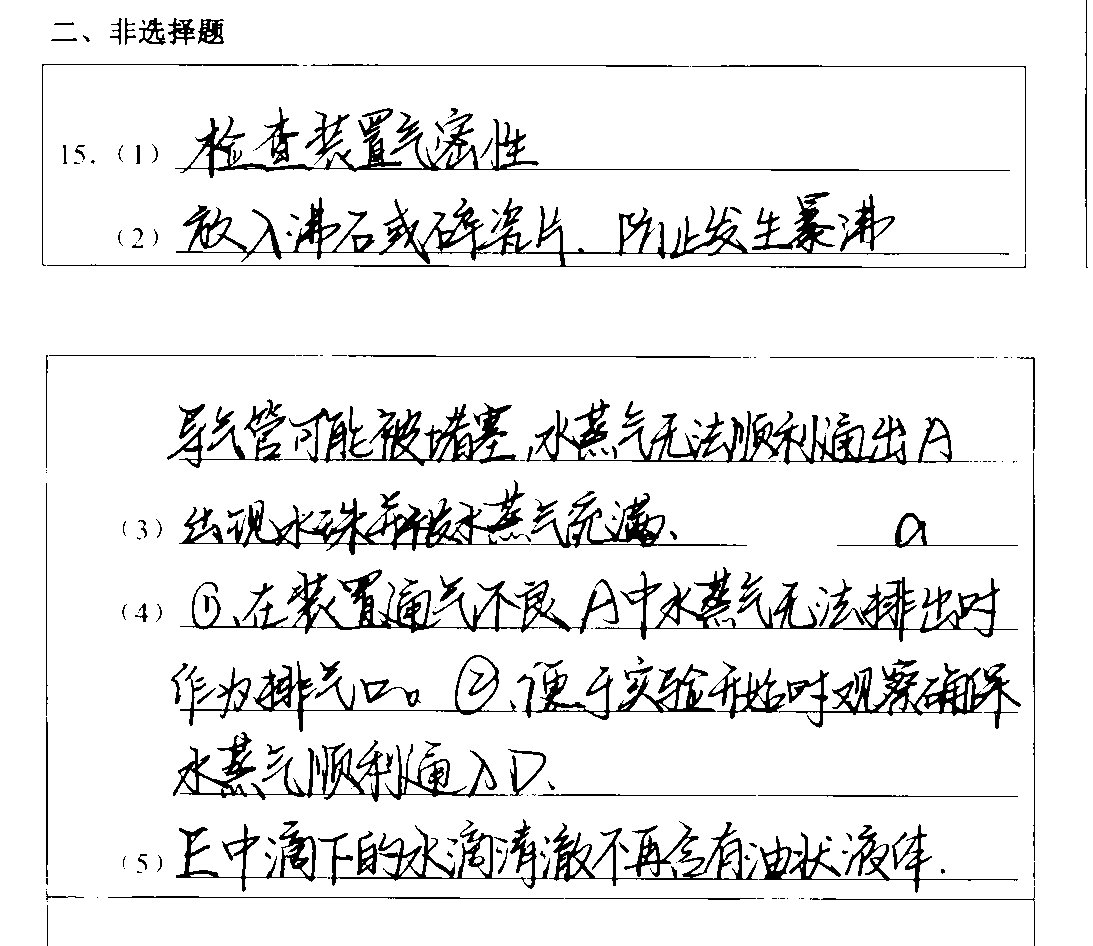 二、非选择题
15.（1）检查装置气密性
（2）放入沸石或碎瓷片. 防止发生暴沸
导气管可能被堵塞,水蒸气无法顺利通出A
（3）出现水珠并被水蒸气充满. a
（4）①、在装置通气不良A中水蒸气无法排出时
作为排气口。②、便于实验开始时观察确保
水蒸气顺利通入D.
（5）E中滴下的水滴清澈不再含有油状液体.